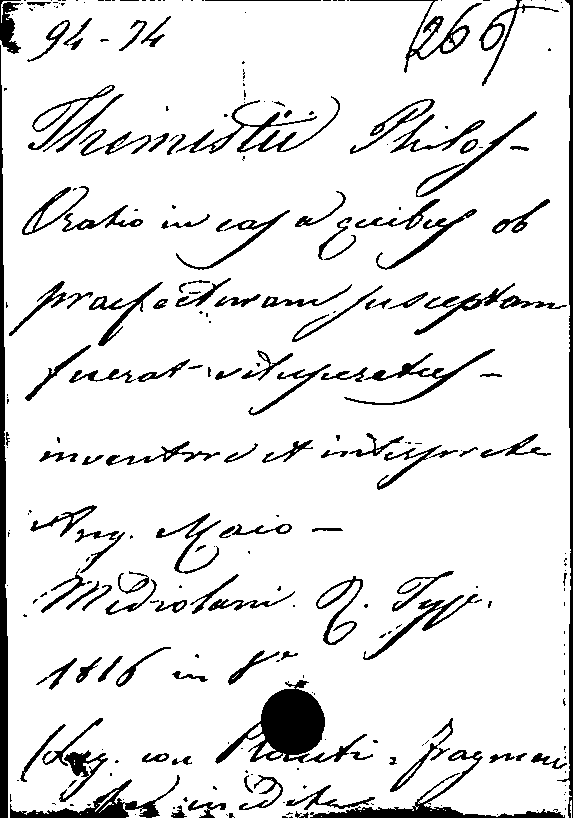 94-74 (266)
Themistii Philos-
Oratio in eos a quibus ob
praefecturam susceptam
fuerat vituperatus -
inventore et interprete
Ang. Maio -
Mediolani. R. Typ.
1816 in 8°
(Leg. con Plauti, fragmen
ta inedita